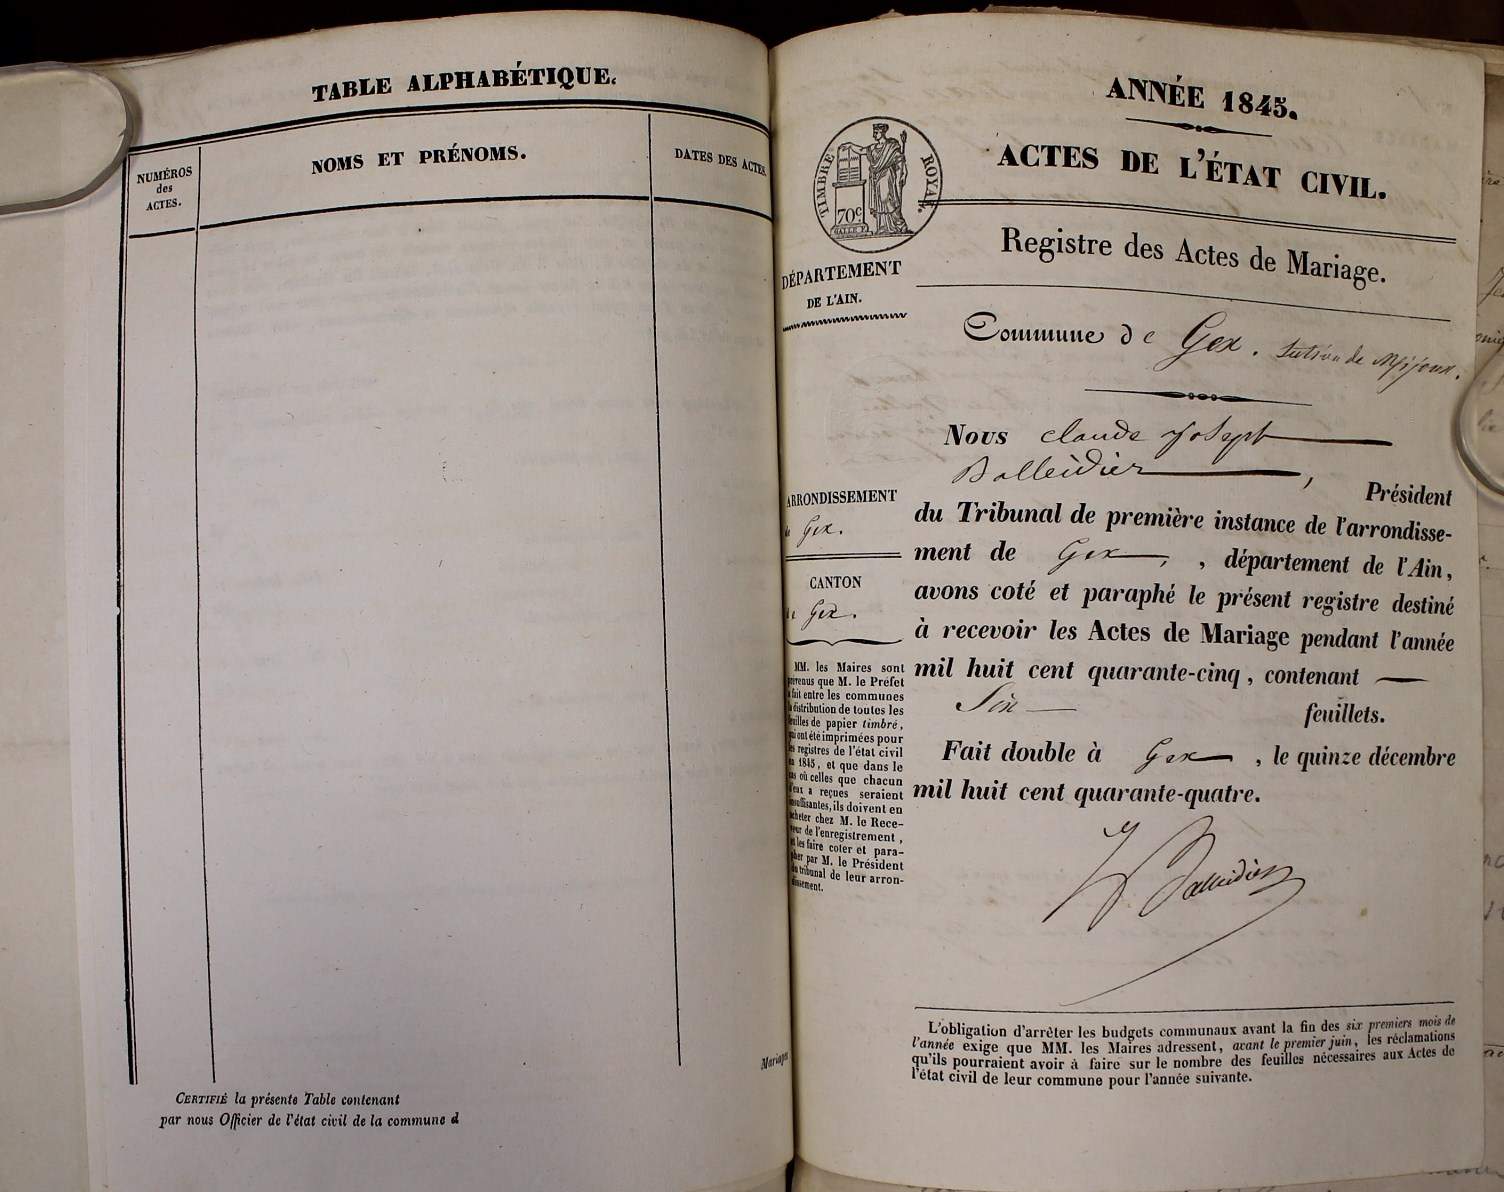 TABLE ALPHABÉTIQUE.
NUMÉROS
des
ACTES.
NOMS ET PRÉNOMS.
DATES DES ACTES.
CERTIFIÉ la présente Table contenant
par nous Officier de l'état civil de la commune d
Mariages
ANNÉE 1845.
ACTES DE L'ÉTAT CIVIL.
TIMBRE ROYAL.
70c
Registre des Actes de Mariage.
DÉPARTEMENT
DE L'AIN.
Commune de Gex. Section de Mijoux.
Nous Claude Joseph
Balleidier, Président
du Tribunal de première instance de l'arrondisse-
ment de Gex, , département de l'Ain,
avons coté et paraphé le présent registre destiné
à recevoir les Actes de Mariage pendant l'année
mil huit cent quarante-cinq, contenant
Six feuillets.
Fait double à Gex , le quinze décembre
mil huit cent quarante-quatre.
Balleidier
ARRONDISSEMENT
de Gex.
CANTON
de Gex.
MM. les Maires sont
prévenus que M. le Préfet
a fait entre les communes
la distribution de toutes les
feuilles de papier timbré,
qui ont été imprimées pour
les registres de l'état civil
en 1845, et que dans le
cas où celles que chacun
d'eux a reçues seraient
insuffisantes, ils doivent en
acheter chez M. le Rece-
veur de l'enregistrement,
et les faire coter et para-
pher par M. le Président
du tribunal de leur arron-
dissement.
L'obligation d'arrêter les budgets communaux avant la fin des six premiers mois de
l'année exige que MM. les Maires adressent, avant le premier juin, les réclamations
qu'ils pourraient avoir à faire sur le nombre des feuilles nécessaires aux Actes de
l'état civil de leur commune pour l'année suivante.